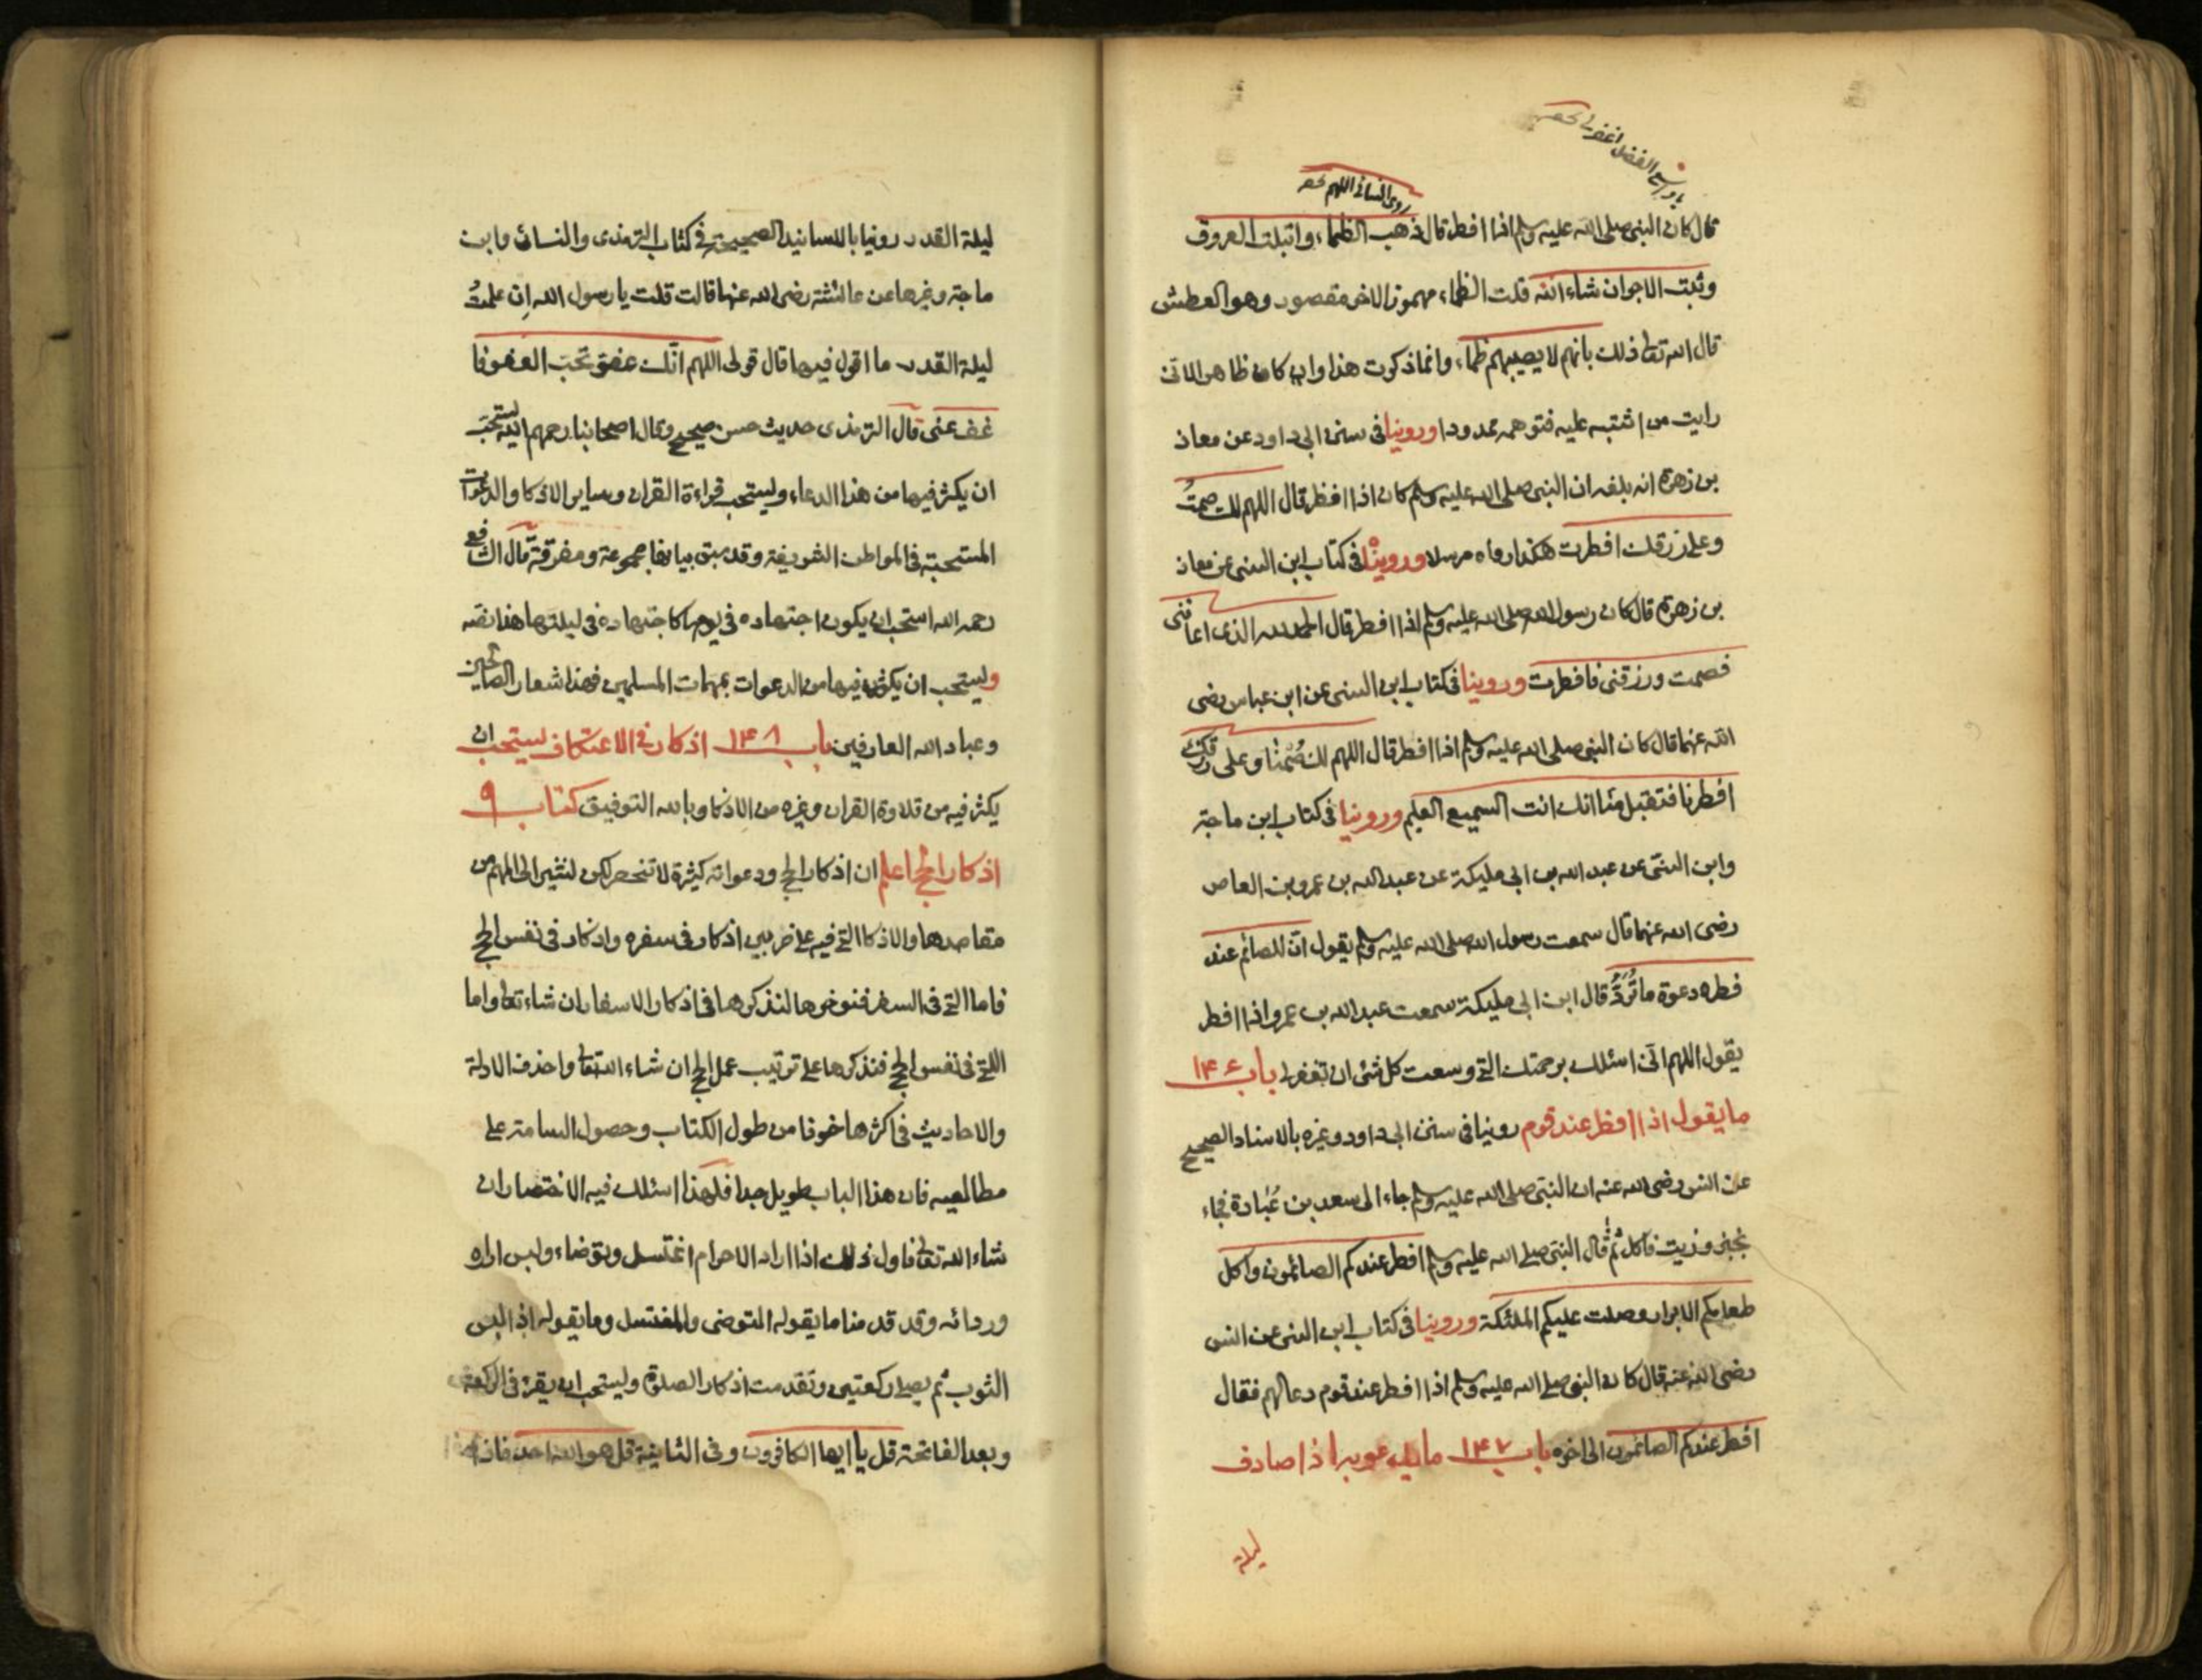 يا واسع الفضل اغفر لى
روى النسائى اللهم
قال كان النبى صلى الله عليه وسلم اذا افطر قال ذهب الظماء وابتلت العروق
وثبت الاجر ان شاء الله قلت الظماء مهموز الاخر مقصور وهو العطش
قال الله تعالى ذلك بانهم لا يصيبهم ظماء وانما ذكرت هذا وان كان ظاهرا لانى
رايت من اشتبه عليه فتوهمه ممدودا وروينا فى سنن ابى داود عن معاذ
بن زهرة انه بلغه ان النبى صلى الله عليه وسلم كان اذا افطر قال اللهم لك صمتُ
وعلى رزقك افطرت هكذا رواه مرسلا وروينا فى كتاب ابن السنى عن معاذ
بن زهرة قال كان رسول الله صلى الله عليه وسلم اذا افطر قال الحمد لله الذى اعاننى
فصمت ورزقنى فافطرت وروينا فى كتاب ابن السنى عن ابن عباس رضى
الله عنهما قال كان النبى صلى الله عليه وسلم اذا افطر قال اللهم لك صُمْنا وعلى رزقك
افطرنا فتقبل منا انك انت السميع العليم وروينا فى كتاب ابن ماجة
وابن السنى عن عبد الله بن ابى مليكة عن عبد الله بن عمرو بن العاص
رضى الله عنهما قال سمعت رسول الله صلى الله عليه وسلم يقول انّ للصائم عند
فطره دعوة ما تُرَدُّ قال ابن ابى مليكة سمعت عبد الله بن عمرو اذا افطر
يقول اللهم انى اسئلك برحمتك التى وسعت كل شئ ان تغفر لى باب ١٤٦
ما يقول اذا افطر عند قوم روينا فى سنن ابى داود وغيره بالاسناد الصحيح
عن انس رضى الله عنه ان النبى صلى الله عليه وسلم جاء الى سعد بن عُبادة فجاء
بخبز وزيت فاكل ثم قال النبى صلى الله عليه وسلم افطر عندكم الصائمون واكل
طعامكم الابرار وصلت عليكم الملئكة وروينا فى كتاب ابن السنى عن انس
رضى الله عنه قال كان النبى صلى الله عليه وسلم اذا افطر عند قوم دعا لهم فقال
افطر عندكم الصائمون الى اخره باب ١٤٧ ما يدعو به اذا صادف
ليلة
ليلة القدر روينا بالاسانيد الصحيحة فى كتاب الترمذى والنسائى وابن
ماجة وغيرها عن عائشة رضى الله عنها قالت قلت يا رسول الله إن علمتُ
ليلة القدر ما اقول فيها قال قولى اللهم انّك عفوّ تحبّ العفو فا
عف عنى قال الترمذى حديث حسن صحيح وقال اصحابنا رحمهم الله يستحبّ
ان يكثر فيها من هذا الدعاء ويستحب قراءة القران وساير الاذكار والدعوات
المستحبة فى المواطن الشريفة وقد سبق بيانها مجموعة ومفرقة قال الشافعى
رحمه الله استحب ان يكون اجتهاده فى يومها كاجتهاده فى ليلتها هذا نصه
ويستحب ان يكثر فيها من الدعوات بمهمات المسلمين فهذا شعار الصالحين
وعباد الله العارفين باب ١٤٨ اذكار فى الاعتكاف يستحب ان
يكثر فيه من تلاوة القران وغيره من الاذكار وبالله التوفيق كتاب ٩
اذكار الحج اعلم ان اذكار الحج ودعواته كثيرة لا تنحصر لكن نشير الى المهم من
مقاصدها والاذكار التى فيه على ضربين اذكار فى سفره واذكار فى نفس الحج
فاما التى فى السفر فنوخرها لنذكرها فى اذكار الاسفار ان شاء تعالى واما
اللتى فى نفس الحج فنذكرها على ترتيب عمل الحج ان شاء الله تعالى واحذف الادلة
والاحاديث فى اكثرها خوفا من طول الكتاب وحصول السامة على
مطالعيه فان هذا الباب طويل جدا فلهذا اسئلك فيه الاختصار ان
شاء الله تعالى فاول ذلك اذا اراد الاحرام اغتسل وتوضاء ولبس ازاره
وردائه وقد قدمنا ما يقوله المتوضى والمغتسل وما يقوله اذا لبس
الثوب ثم يصلى ركعتين وتقدمت اذكار الصلوة ويستحب ان يقرء فى الركعة
وبعد الفاتحة قل يا ايها الكافرون وفى الثانية قل هو الله احد فاذا